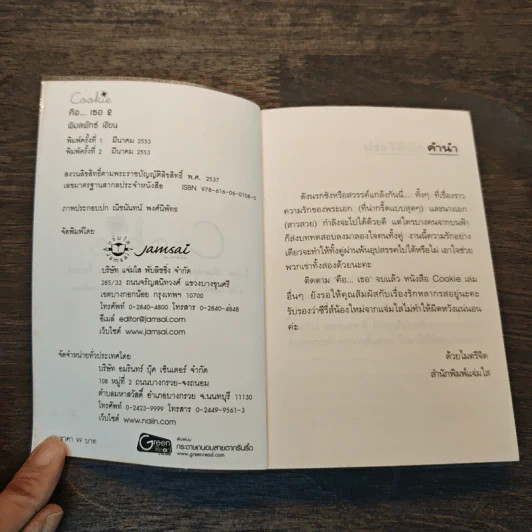 Cookie
คือ... เธอ 2
พิมลพักธ์ เขียน
พิมพ์ครั้งที่ 1 มีนาคม 2553
พิมพ์ครั้งที่ 2 มีนาคม 2553
สงวนลิขสิทธิ์ตามพระราชบัญญัติลิขสิทธิ์ พ.ศ. 2537
เลขมาตรฐานสากลประจำหนังสือ ISBN 978-616-06-0108-0
ภาพประกอบปก ณิชนันทน์ พงศ์นิพัทธ
จัดพิมพ์โดย
jamsai
บริษัท แจ่มใส พับลิชชิ่ง จำกัด
285/33 ถนนจรัญสนิทวงศ์ แขวงบางขุนศรี
เขตบางกอกน้อย กรุงเทพฯ 10700
โทรศัพท์ 0-2840-4800 โทรสาร 0-2840-4848
อีเมล์ editor@jamsai.com
เว็บไซต์ www.jamsai.com
จัดจำหน่ายทั่วประเทศโดย
บริษัท อมรินทร์ บุ๊ค เซ็นเตอร์ จำกัด
108 หมู่ที่ 2 ถนนบางกรวย-จงถนอม
ตำบลมหาสวัสดิ์ อำเภอบางกรวย จ.นนทบุรี 11130
โทรศัพท์ 0-2423-9999 โทรสาร 0-2449-9561-3
เว็บไซต์ www.naiin.com
ราคา 99 บาท
Green
Read
กระดาษถนอมสายตากรีนรี้ด
www.greenread.com
คำนำ
ดังนรกชังหรือสวรรค์แกล้งกันนี่... ทั้งๆ ที่เรื่องราว
ความรักของพระเอก (ที่น่ากรี๊ดแบบสุดๆ) และนางเอก
(สาวสวย) กำลังจะไปได้ด้วยดี แต่ใครบางคนจากบนฟ้า
ก็ส่งบททดสอบลงมาลองใจคนทั้งคู่ งานนี้ความรักอย่าง
เดียวจะทำให้ทั้งคู่ผ่านพ้นอุปสรรคไปได้หรือไม่ เอาใจช่วย
พวกเขาทั้งสองด้วยนะคะ
ติดตาม ‘คือ... เธอ’ จบแล้ว หนังสือ Cookie เล่ม
อื่นๆ ยังรอให้คุณสัมผัสกับเรื่องรักหลากรสอยู่นะคะ
รับรองว่าซีรี่ส์น้องใหม่จากแจ่มใสไม่ทำให้ผิดหวังแน่นอน
ค่ะ
ด้วยไมตรีจิต
สำนักพิมพ์แจ่มใส